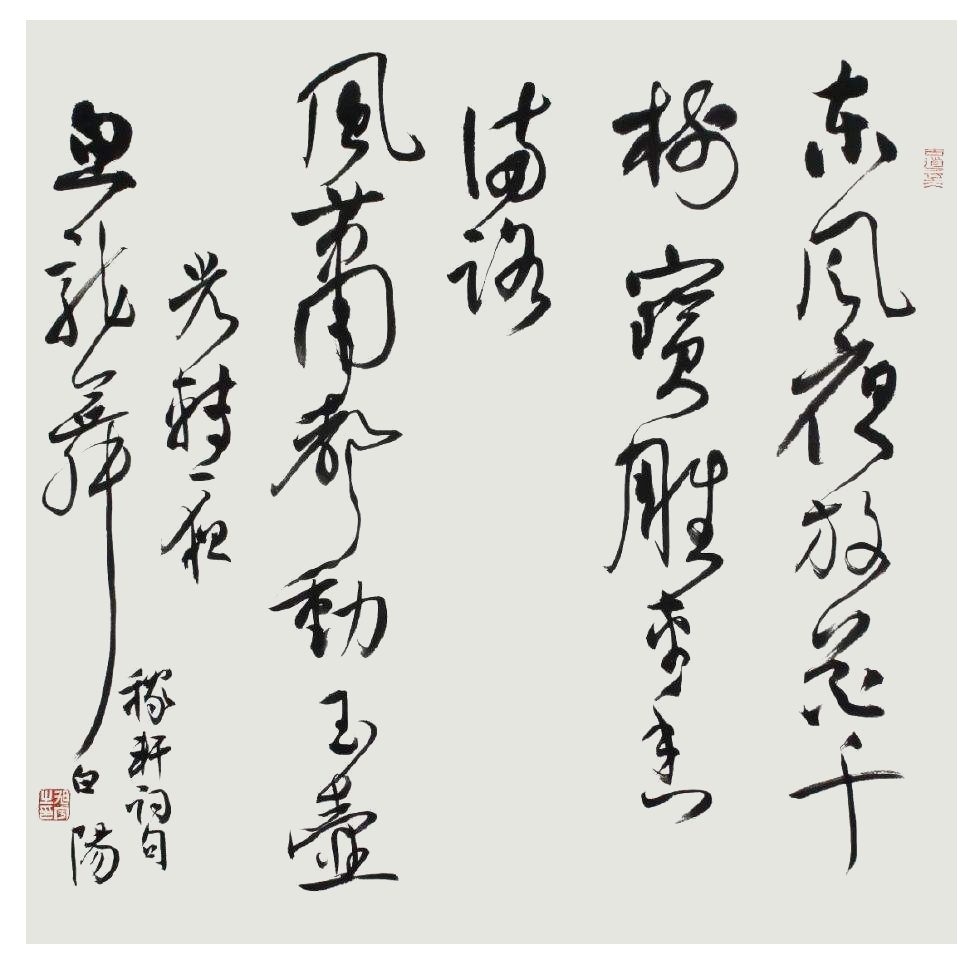 東風夜放花千
樹寶雕車香
滿路
鳳簫聲動玉壺
光轉一夜
魚龍舞
稼軒詞句
白陽